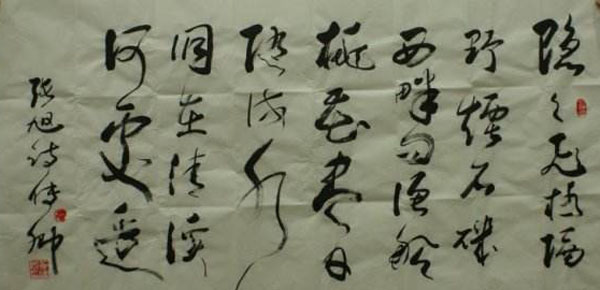 隐々飞橋隔
野煙石磯
西畔问渔船
桃花尽日
随流水
洞在清溪
何处边
张旭诗